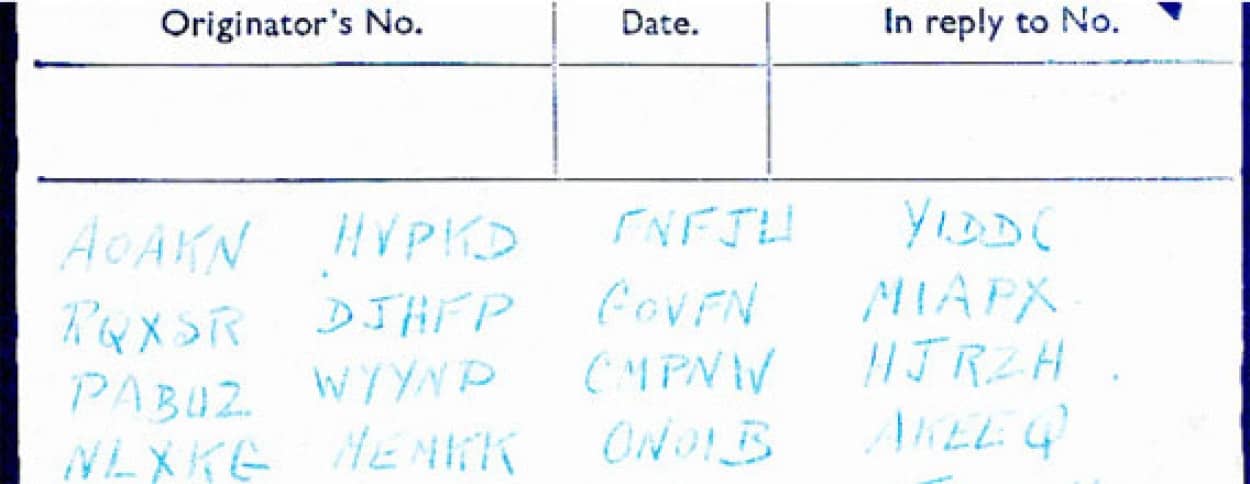 Originator's No. Date. In reply to No.
AOAKN HVPKD FNFJW YIDDC
RQXSR DJHFP GOVFN MIAPX
PABUZ WYYNP CMPNW HJRZH
NLXKG MEMKK ONOIB AKEEQ